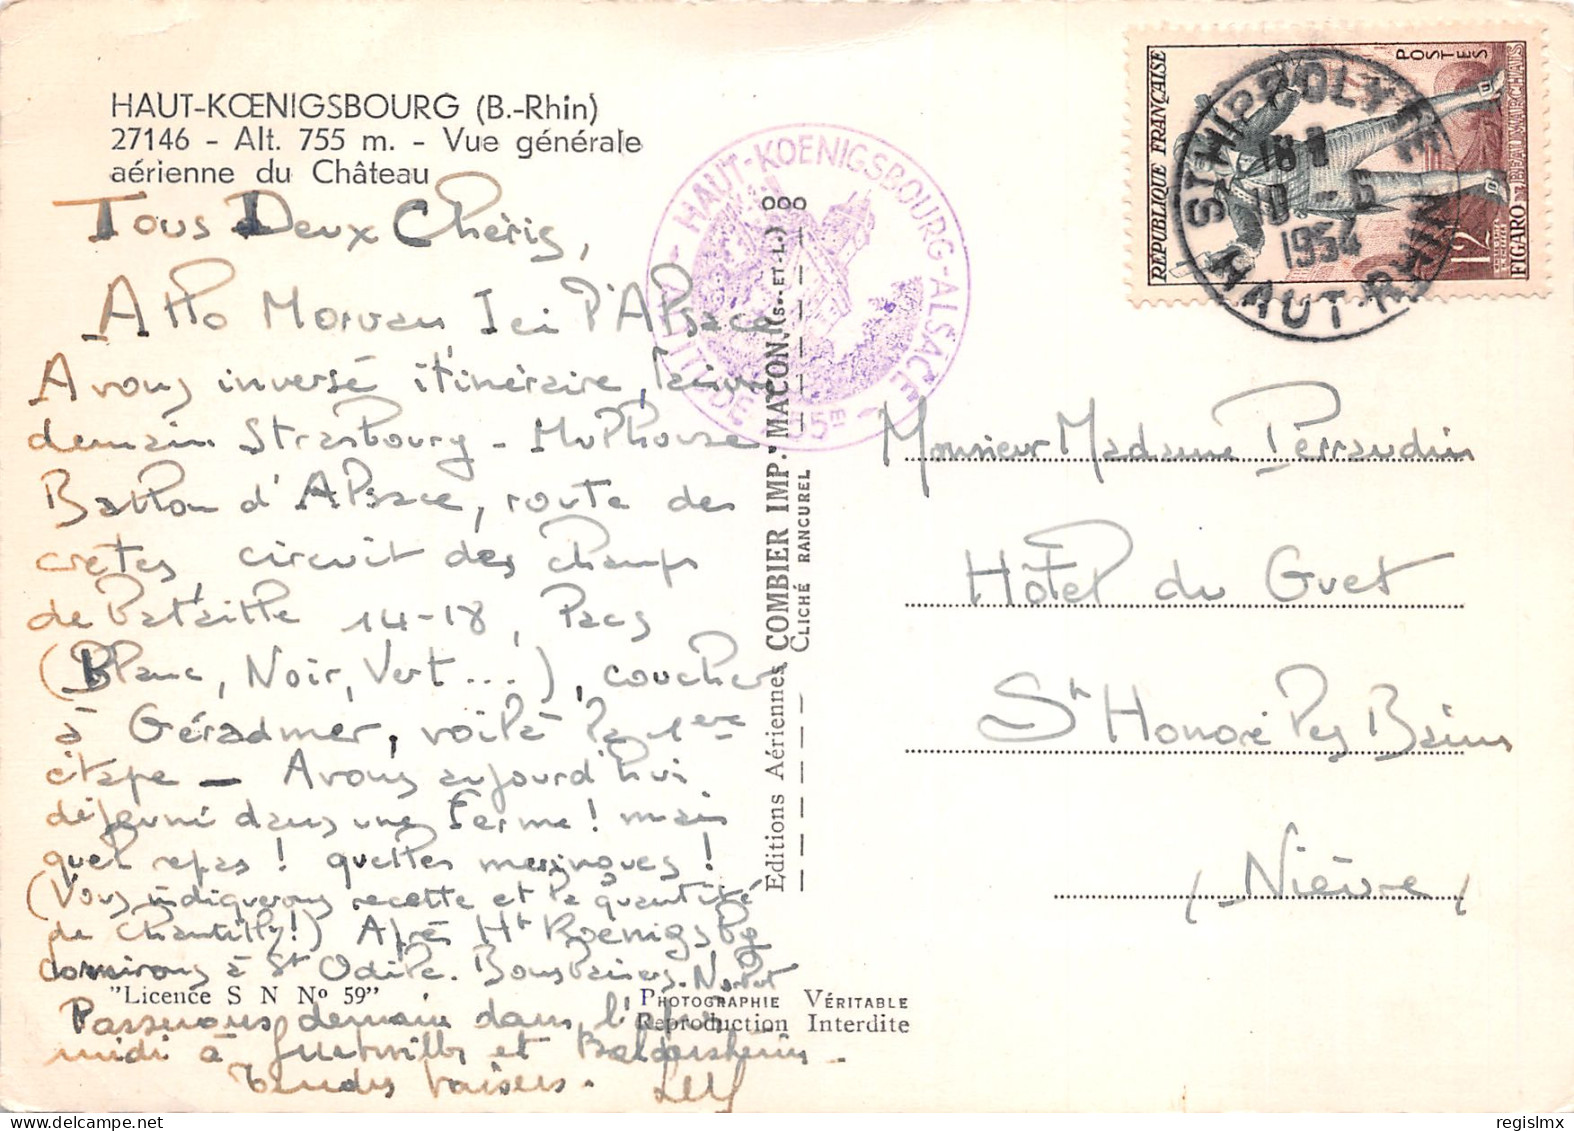 HAUT-KŒNIGSBOURG (B.-Rhin)
27146 - Alt. 755 m. - Vue générale
aérienne du Château
Tous Deux Chéris,
Allo Morvan, Ici l'Alsace
Avons inversé itinéraire, faisons
demain Strasbourg - Mulhouse
Ballon d'Alsace, route des
crêtes, circuit des champs
de bataille 14-18, Lacs
(Blanc, Noir, Vert...), coucher
à Géradmer, voilà la 1ère
étape - Avons aujourd'hui
déjeuné dans une Ferme! mais
quel repas! quelles meringues!
(Vous indiquerons recette et la quantité
de Chantilly!) Après Ht Koenigsbg
dormirons à St Odile. Bons baisers.
"Licence S N Nº 59"
Passerons demain dans l'après
midi à et
Tendres baisers.
HAUT-KOENIGSBOURG-ALSACE
ALTITUDE 755m
ooo
Editions Aériennes COMBIER IMP. MACON (S.-ET-L.)
CLICHÉ RANCUREL
PHOTOGRAPHIE VÉRITABLE
Reproduction Interdite
RÉPUBLIQUE FRANÇAISE
POSTES
12F
FIGARO - BEAUMARCHAIS
ST HIPPOLYTE
1954
HAUT-RHIN
Monsieur Madame Perraudin
Hôtel du Guet
St Honoré les Bains
(Nièvre)
regislmx